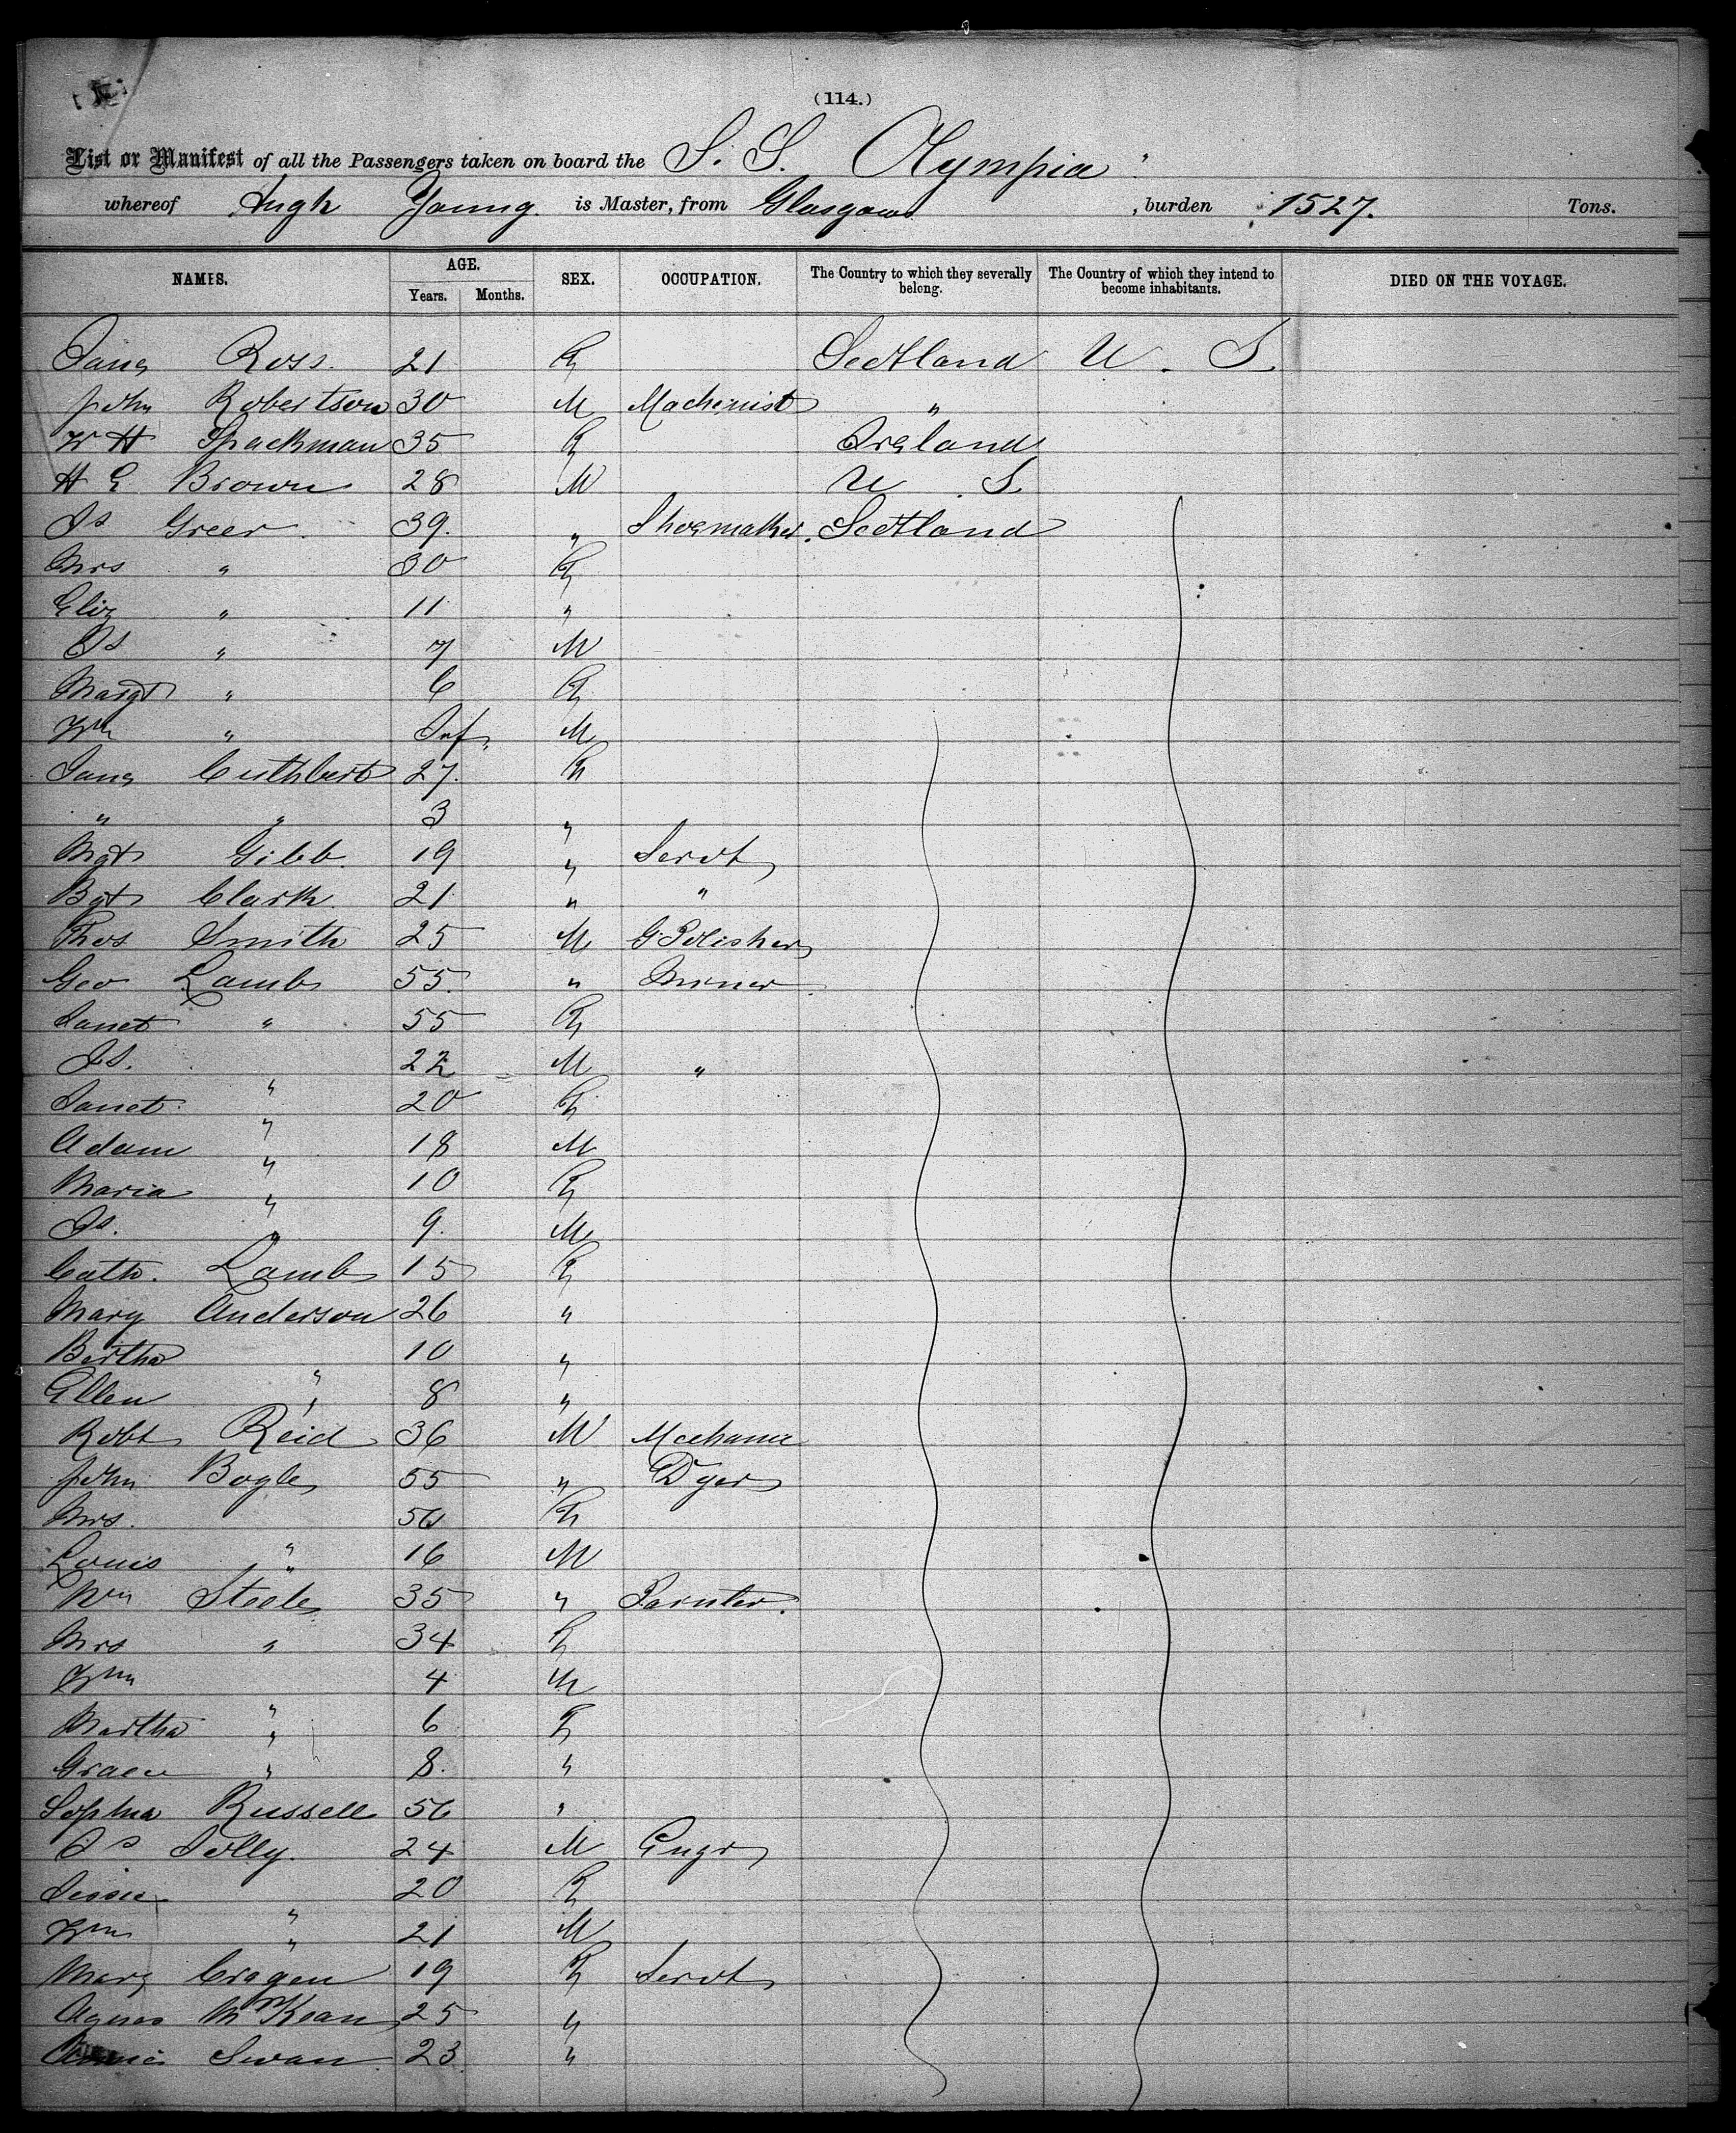 (114.)
List or Manifest of all the Passengers taken on board the S. S. Olympia
whereof Hugh Young is Master, from Glasgow, burden 1527. Tons.
NAMES. AGE. SEX. OCCUPATION. The Country to which they severally belong. The Country of which they intend to become inhabitants. DIED ON THE VOYAGE.
Years. Months.
Jane Ross. 21 F Scotland U. S.
John Robertson 30 M Machinist "
W H Spackman 35 F Ireland
H E Brown 28 M U. S.
Js Greer 39. " Shoemaker. Scotland
Mrs " 30 F
Eliz " 11 "
Js " 7 M
Margt " 6 F
Wm " Inf. M
Jane Cuthbert 27. F
" " 3 "
Mgt Gibb 19 " Servt
Bgt Clark. 21 " "
Thos Smith 25 M G. Polisher
Geo Lamb 55. " Miner
Janet " 55 F
Js. " 22 M "
Janet " 20 F
Adam " 18 M
Maria " 10 F
Js. " 9. M
Cath. Lamb 15 F
Mary Anderson 26 "
Bertha " 10 "
Ellen " 8 "
Robt Reid 36 M Mechanic
John Bogle 55 " Dyer
Mrs. " 56 F
Louis " 16 M
Wm Steele 35 " Painter.
Mrs " 34 F
Wm " 4 M
Martha " 6 F
Grace " 8. "
Sophia Russell 56 "
Js Jolly. 24 M Engr
Jessie " 20 F
Wm " 21 M
Mary Cragen 19 F Servt
Agnes McKean 25 "
Swan 23 "